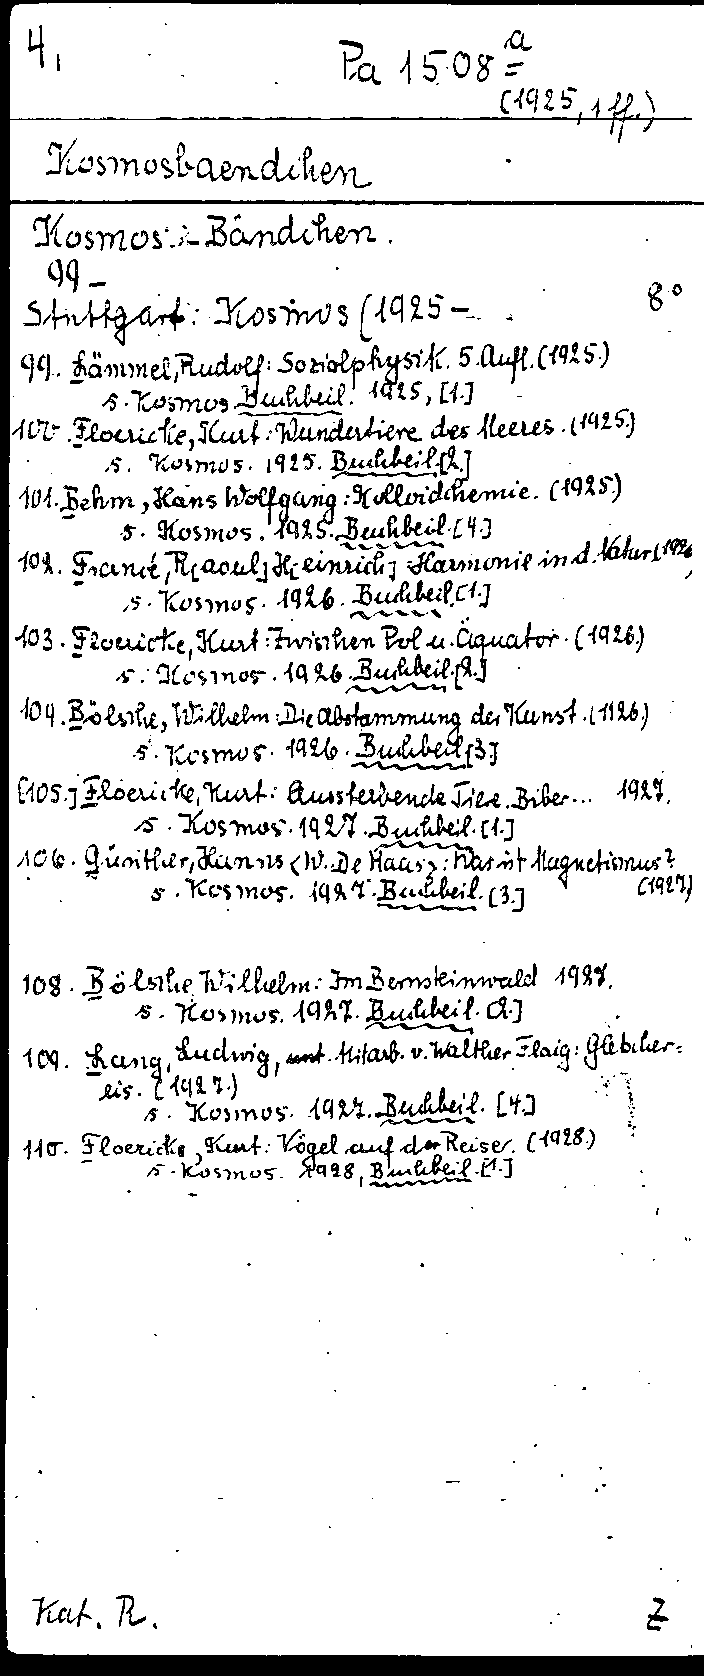 4,
Pa 1508 a
(1925, 1 ff.)
Kosmosbaendchen
Kosmos-Bändchen.
99-
8°
Stuttgart: Kosmos (1925-
99. Lämmel, Rudolf: Sozialphysik. 5. Aufl. (1925.)
s. Kosmos Buchbeil. 1925, [1.]
100. Floericke, Kurt: Wundertiere des Meeres. (1925.)
s. Kosmos. 1925. Buchbeil. [2.]
101. Behm, Hans Wolfgang: Kolloidchemie. (1925.)
s. Kosmos. 1925. Buchbeil. [4.]
102. Francé, R[aoul] H[einrich]: Harmonie in d. Natur. (1926
s. Kosmos. 1926. Buchbeil. [1.]
103. Floericke, Kurt: Zwischen Pol u. Äquator. (1926.)
s. Kosmos. 1926. Buchbeil. [2.]
104. Bölsche, Wilhelm: Die Abstammung der Kunst. (1926)
s. Kosmos. 1926. Buchbeil. [3]
[105.] Floericke, Kurt: Aussterbende Tiere. Biber... 1927.
s. Kosmos. 1927. Buchbeil. [1.]
106. Günther, Hanns <W. De Haas>: Was ist Magnetismus?
(1927)
s. Kosmos. 1927. Buchbeil. [3.]
108. Bölsche, Wilhelm: Im Bernsteinwald 1927.
s. Kosmos. 1927. Buchbeil. [2.]
109. Lang, Ludwig, unt. Mitarb. v. Walther Flaig: Gletscher=
eis. (1927.)
s. Kosmos. 1927. Buchbeil. [4.]
110. Floericke, Kurt: Vögel auf der Reise. (1928.)
s. Kosmos. 1928, Buchbeil. [1.]
Kat. R.
Z